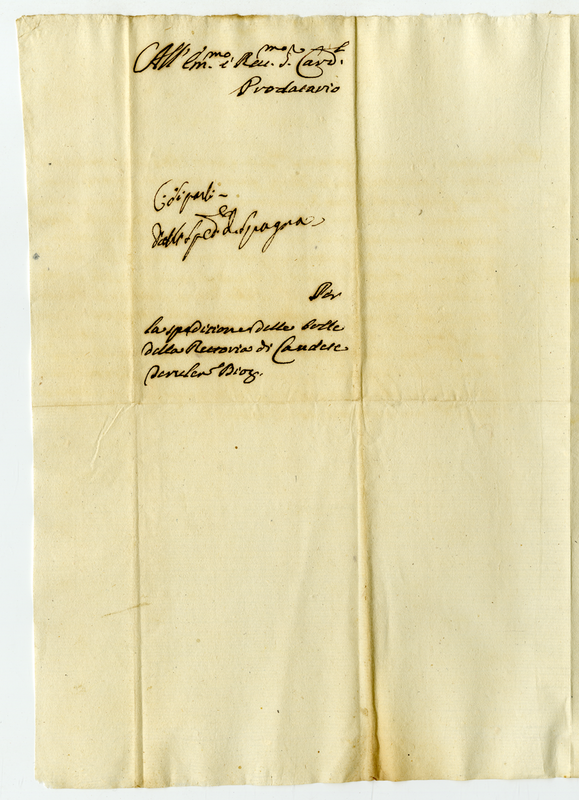 All' Em.mo e Reu.mo S. Card.l
Prodatario
Si parli
dallo Sped.re di Spagna
Per
la spedizione delle bolle
della Rettoria di
Dioç.